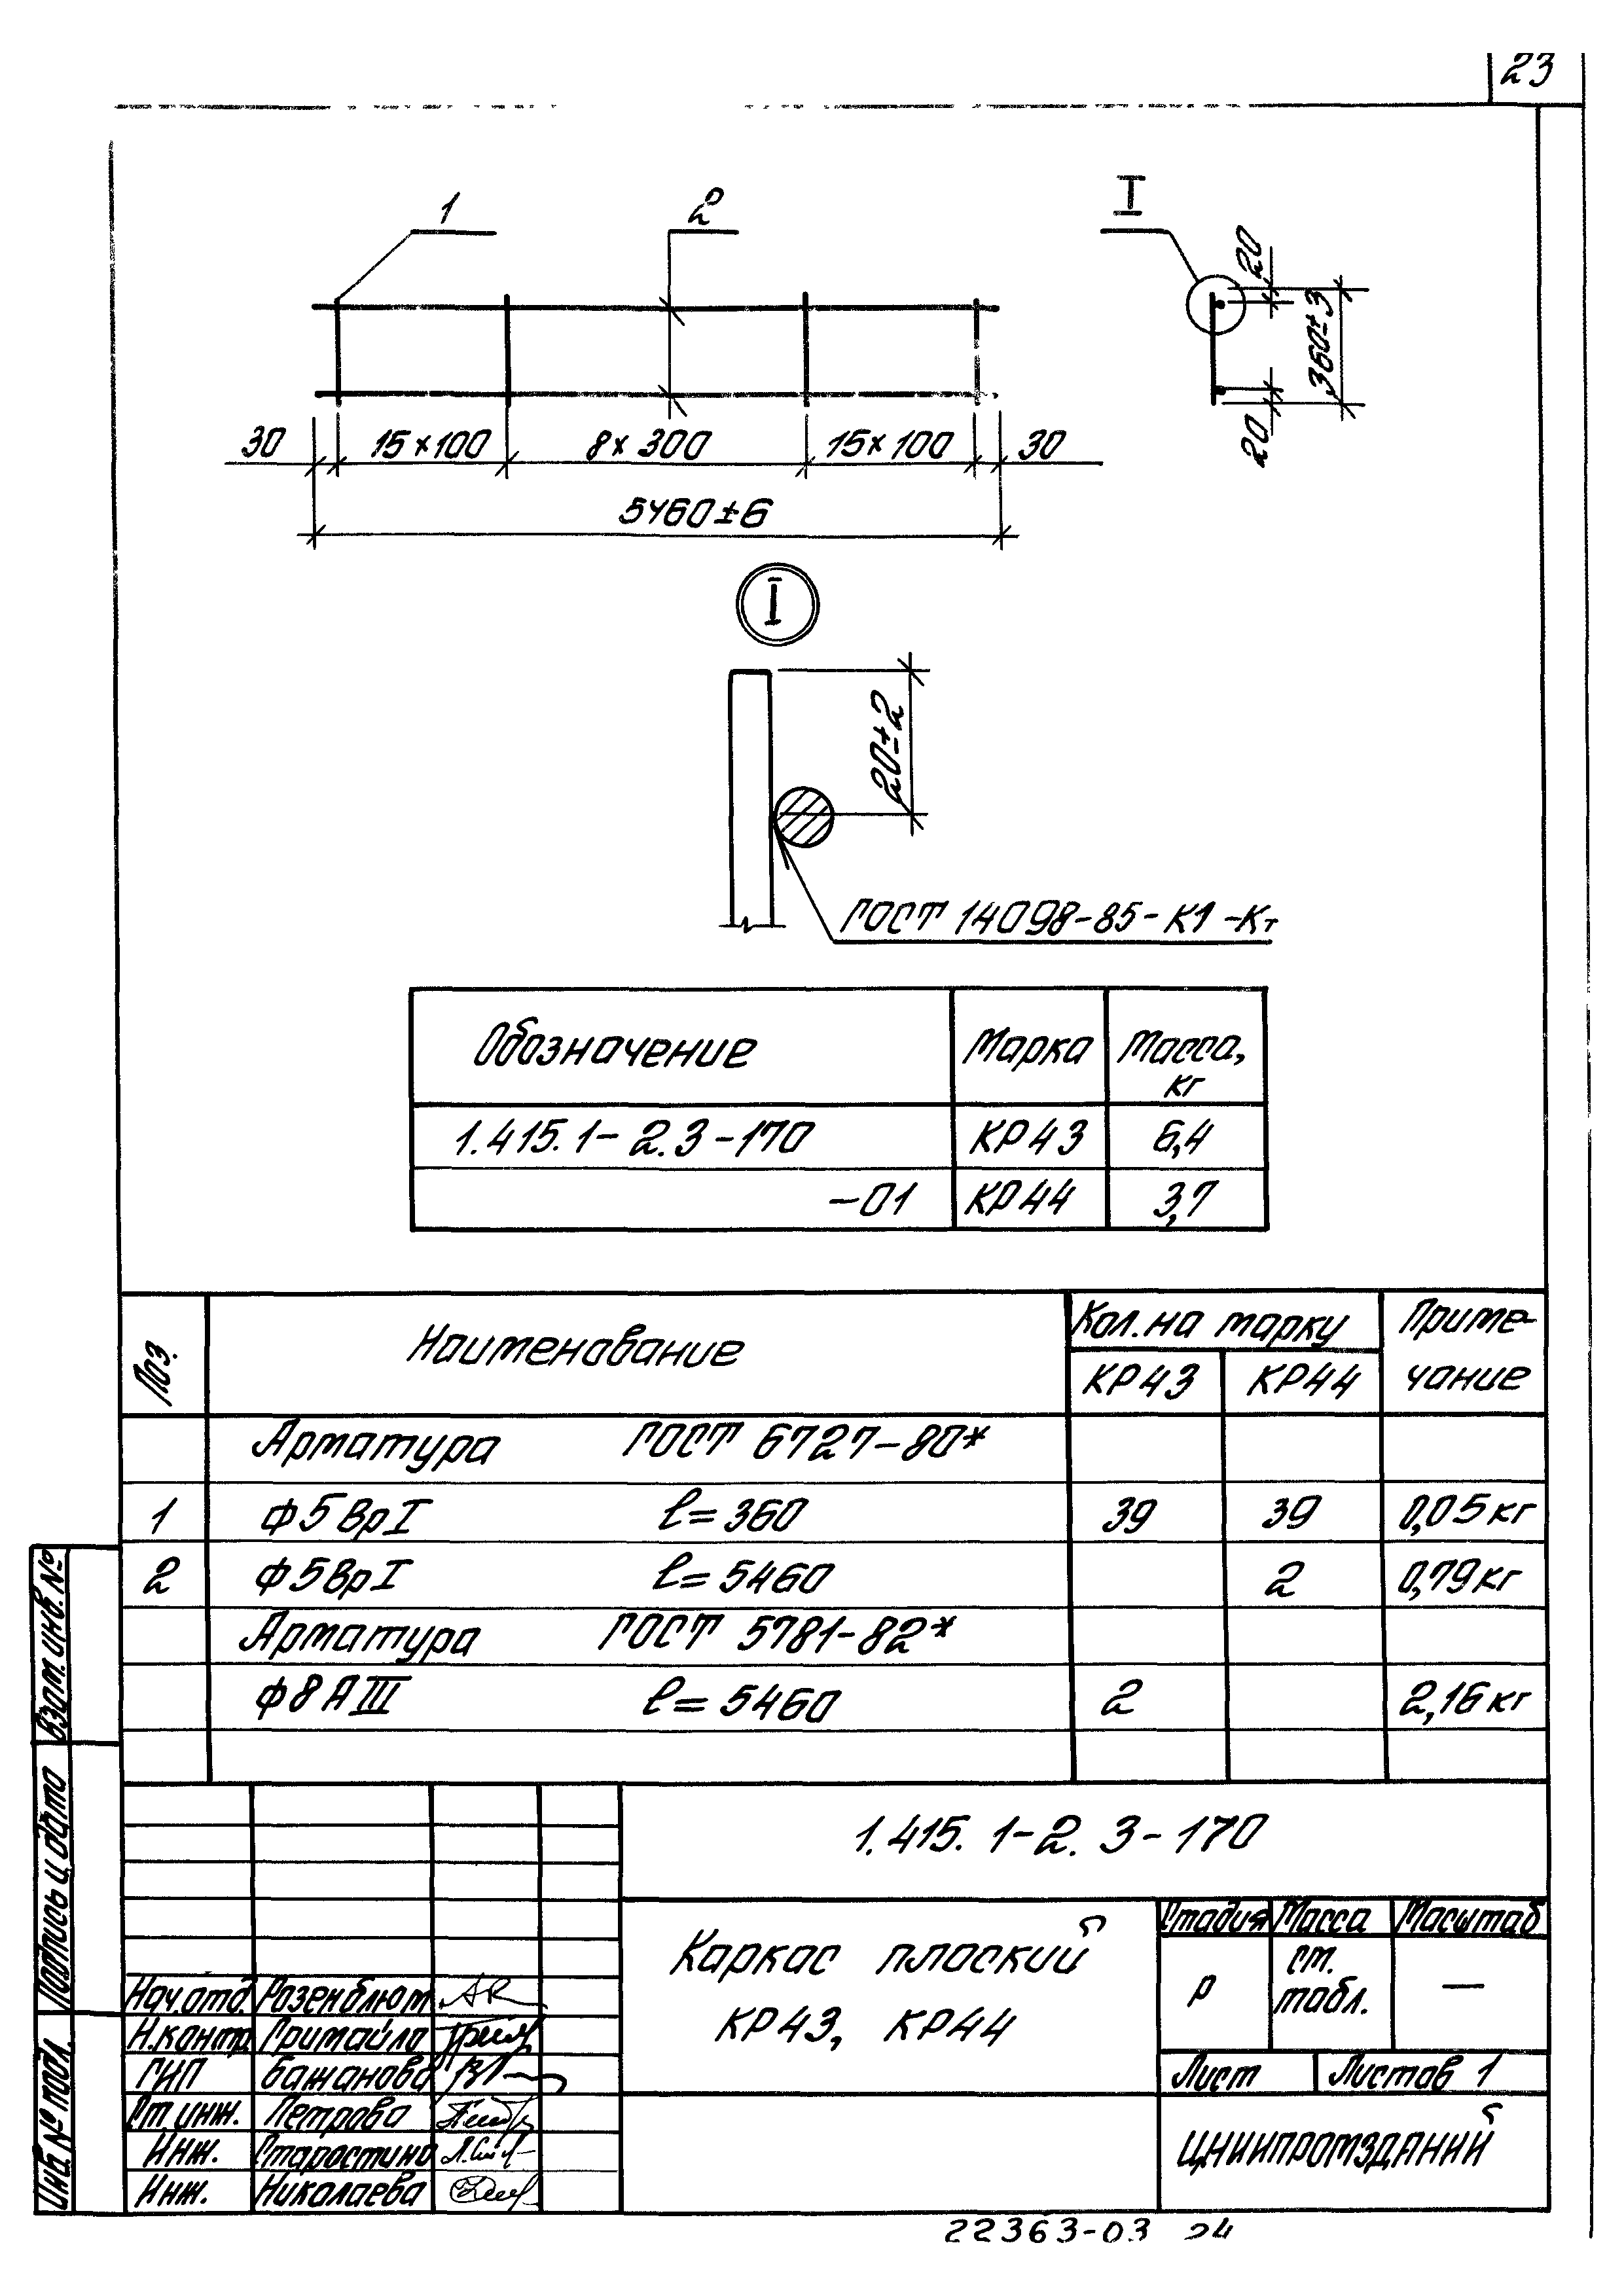 23
1
2
I
20
360±3
20
30
15×100
8×300
15×100
30
5460±6
I
20±2
ГОСТ 14098-85-К1-Кт
Обозначение Марка Масса, кг
1.415.1-2.3-170 КР43 6,4
-01 КР44 3,7
Поз. Наименование Кол. на марку Приме-
КР43 КР44 чание
Арматура ГОСТ 6727-80*
1 Ф5ВрI ℓ=360 39 39 0,05кг
2 Ф5ВрI ℓ=5460 2 0,79кг
Арматура ГОСТ 5781-82*
Ф8АIII ℓ=5460 2 2,16кг
Взам. инв. №
Подпись и дата
Инв. № подл.
1.415.1-2.3-170
Каркас плоский
КР43, КР44
Стадия Масса Масштаб
р см. табл. —
Лист Листов 1
ЦНИИПРОМЗДАНИЙ
Нач.отд. Розенблют
Н.контр. Гримайло
ГИП Бажанова
Ст.инж. Петрова
Инж. Старостина
Инж. Николаева
22363-03 24